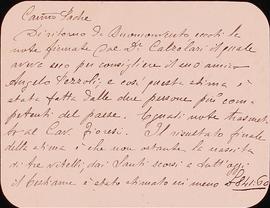 Carmo Padre
Di ritorno da Buonconvento eccoti la
nota firmata dal Dr. Calzolari il quale
avere uno per consigliere il suo amico
Angelo Pezzoli; e così questa stima è
stata fatta dalle due persone più com-
petenti del paese. Equali note trasmet-
to al Cav. Fioresi. Il risultato finale
della stima è che non ostante la nascita
di tre vitelli, dai Santi scorsi a tutt'oggi
il bestiame è stato stimato in meno £841.60